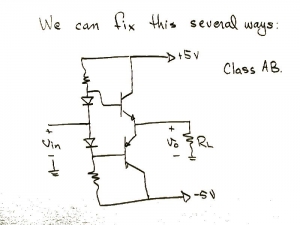 We can fix this several ways:
+5V
Class AB.
+
+
Vin
Vo
RL
-
-
-5V